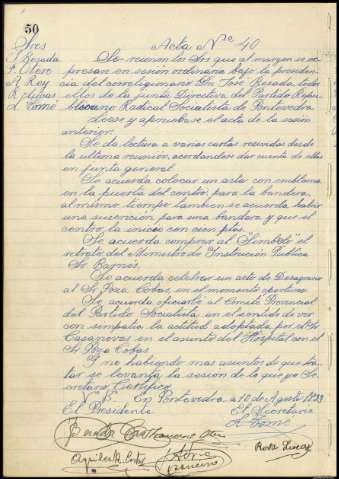 50
Sres
J. Bozada
F. Otero
Rey
R. Lubas
A. Tomé
Acta Nº 40
Se reunen los Srs que al margen se ex
presan en sesión ordinaria bajo la presiden
cia del correligionario Dn José Bozada todos
ellos de la junta Directiva del Partido Repu
blicano Radical Socialista de Pontevedra
Lease y apruebase el acta de la sesión
anterior.
Se da lectura a varias cartas recividas desde
la ultima reunion, acordandose dar cuenta de ellas
en junta general
Se acuerda colocar un asta con emblema
en la puerta del centro para la bandera,
al mismo tiempo tambien se acuerda habrir
una suscrición para una bandera y que el
centro la inicie con cien ptas
Se acuerda comprar al "Simbolo" el
retrato del Ministro de Instrución Publica
Sr Barnés.
Se acuerda celebrar un acto de Desagravio
al Sr Poza Cobas, en el momento oportuno
Se acuerda oficiarle al Comité Provincial
del Partido Socialista, en el sentido de ver
con simpatia la actitud adoptada por el Sr
Casanovas en el asunto del Hospital con el
Sr Poza Cobas
Y no habiendo mas asuntos de que tra
tar se levanta la sesión de la que yo Se
cretario Certifico
En Pontevedra a 10 de Agosto 1933
El Presidente
El Secretario
A. Tomé